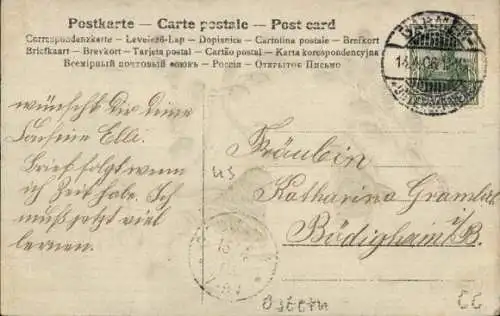 Postkarte — Carte postale — Post card
Correspondenzkarte - Levelező-Lap - Dopisnice - Cartolina postale - Brefkort
Briefkaart - Brevkort - Tarjeta postal - Cartão postal - Karta korespondencyjna
Всемірный почтовый союзъ - Россія - Открытое Письмо
wünscht Dir deine
Cousine Elli.
Brief folgt wenn
ich Zeit habe. Ich
muß jetzt viel
lernen.
Fräulein
Katharina Gramlich
Bödigheim i/B.